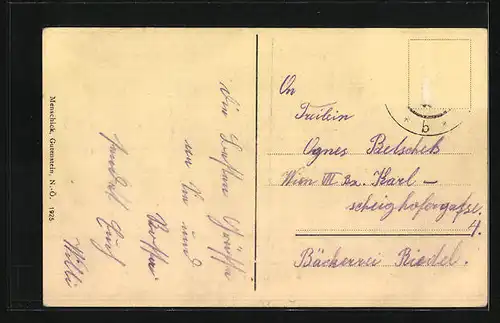 Menschick, Gutenstein, N.-Ö. 1925
Die besten Grüsse
an Sie und
Mutter
sendet Euch
Willi
An
Fräulein
Agnes Belschek
Wien VII Bz. Karl –
schweighofergasse.
4.
Bäckerrei Riedel.
* b *